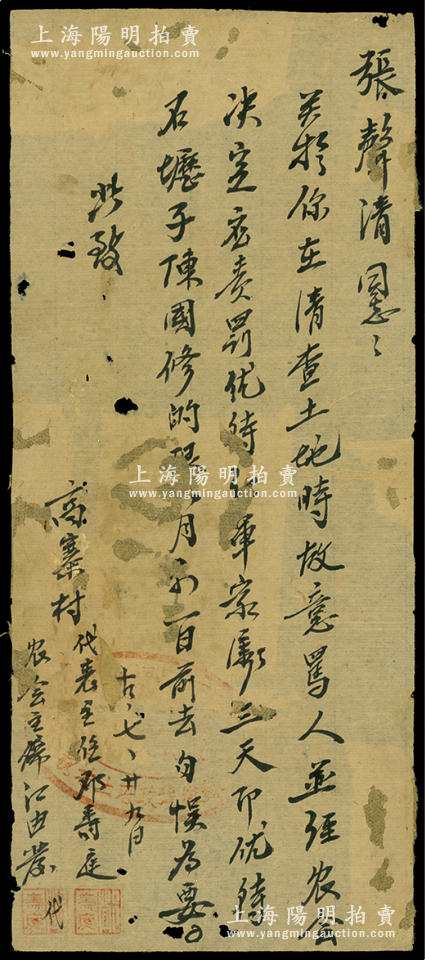 張聲清同志：
关於你在清查土地時故意罵人並經农会
决定应責罚优待軍家屬三天即优待
石壩子陳國修的月一日前去勿悮為要。
此致
高寨村代表主任邓壽廷
农会主席江由 代
七、廿九日
上海陽明拍賣
www.yangmingauction.com
上海陽明拍賣
www.yangmingauction.com
上海陽明拍賣
www.yangmingauction.com